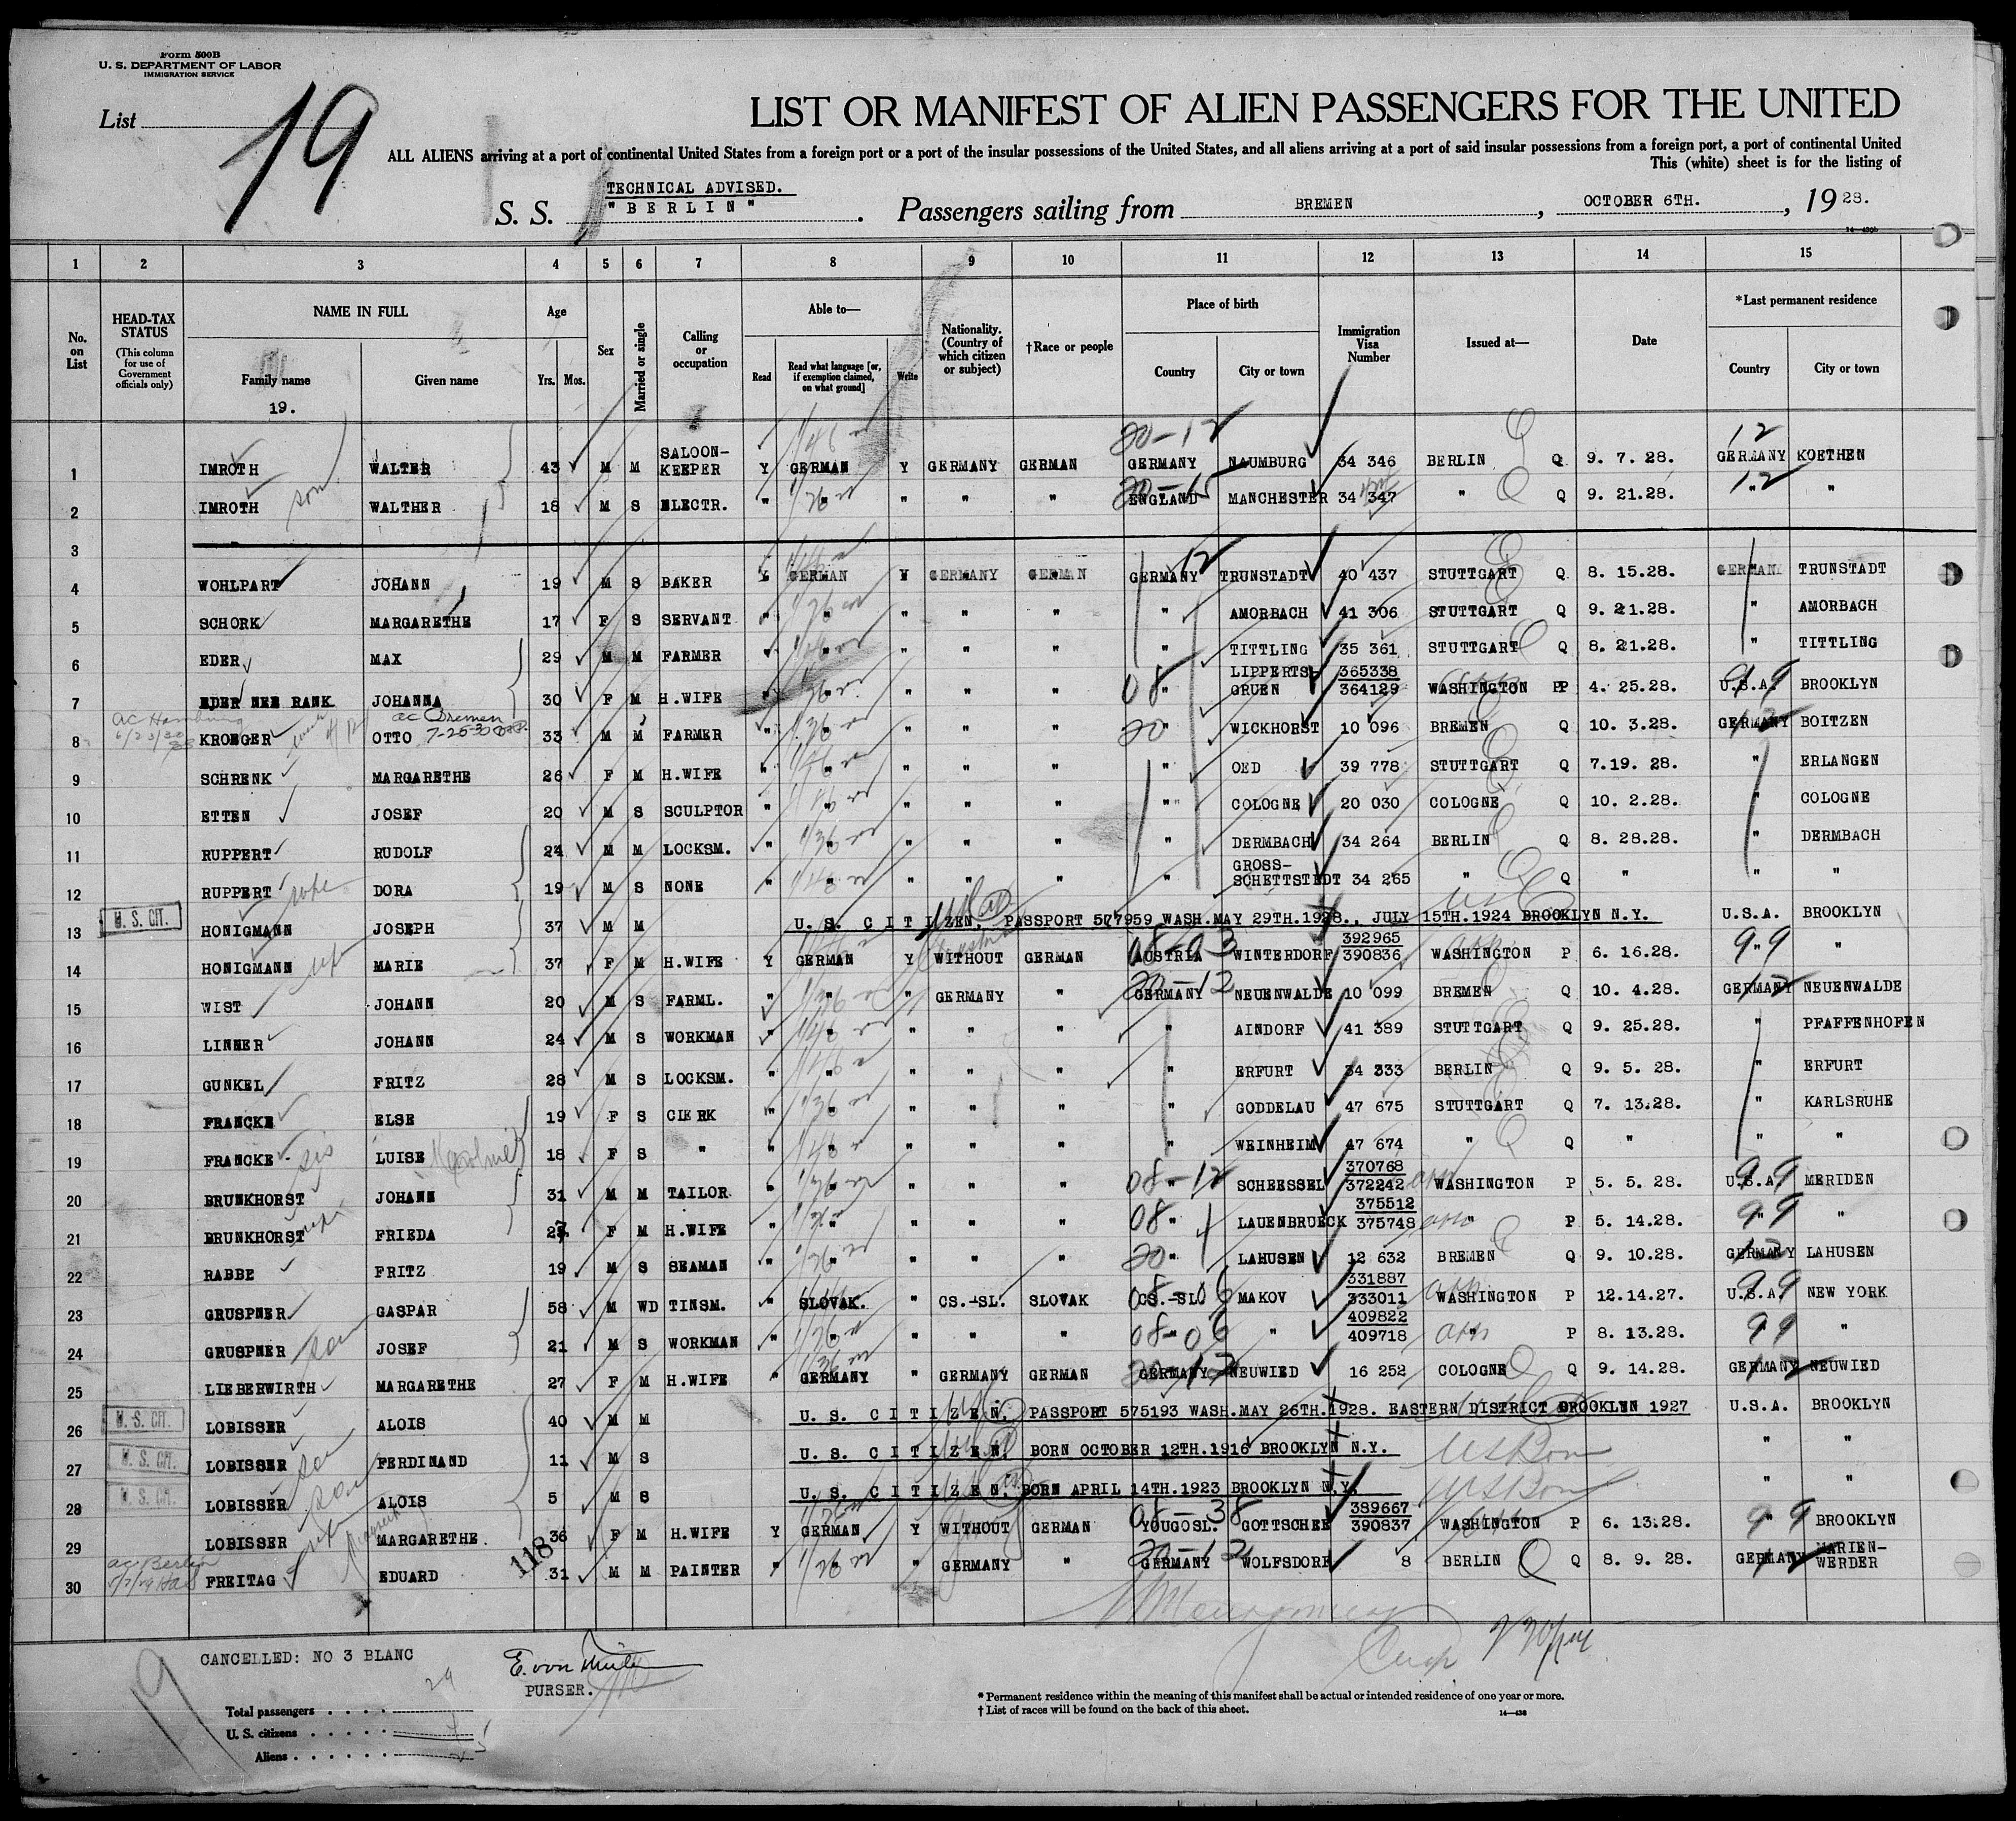 Form 500B
U. S. DEPARTMENT OF LABOR
IMMIGRATION SERVICE
List 19
LIST OR MANIFEST OF ALIEN PASSENGERS FOR THE UNITED
ALL ALIENS arriving at a port of continental United States from a foreign port or a port of the insular possessions of the United States, and all aliens arriving at a port of said insular possessions from a foreign port, a port of continental United
This (white) sheet is for the listing of
TECHNICAL ADVISED.
S. S. "BERLIN". Passengers sailing from BREMEN, OCTOBER 6TH., 1928.
1 2 3 4 5 6 7 8 9 10 11 12 13 14 15
No. on List
HEAD-TAX STATUS (This column for use of Government officials only)
NAME IN FULL Family name Given name
Age Yrs. Mos.
Sex
Married or single
Calling or occupation
Able to— Read Read what language [or, if exemption claimed, on what ground] Write
Nationality. (Country of which citizen or subject)
†Race or people
Place of birth Country City or town
Immigration Visa Number
Issued at—
Date
*Last permanent residence Country City or town
19.
1 IMROTH WALTER 43 M M SALOON-KEEPER Y GERMAN Y GERMANY GERMAN GERMANY NAUMBURG 34 346 BERLIN Q 9. 7. 28. GERMANY KOETHEN
2 IMROTH son WALTHER 18 M S ELECTR. " " " " " ENGLAND MANCHESTER 34 347 " Q 9. 21.28. " "
3
4 WOHLPART JOHANN 19 M S BAKER Y GERMAN Y GERMANY GERMAN GERMANY TRUNSTADT 40 437 STUTTGART Q 8. 15.28. GERMANY TRUNSTADT
5 SCHORK MARGARETHE 17 F S SERVANT " " " " " " AMORBACH 41 306 STUTTGART Q 9. 21.28. " AMORBACH
6 EDER MAX 29 M M FARMER " " " " " " TITTLING 35 361 STUTTGART Q 8. 21.28. " TITTLING
7 EDER NEE RANK JOHANNA 30 F M H.WIFE " " " " " " LIPPERTS GRUEN 365338 364129 WASHINGTON PP 4. 25.28. U.S.A. BROOKLYN
8 KROEGER OTTO 33 M M FARMER " " " " " " WICKHORST 10 096 BREMEN Q 10. 3.28. GERMANY BOITZEN
9 SCHRENK MARGARETHE 26 F M H.WIFE " " " " " " OED 39 778 STUTTGART Q 7.19. 28. " ERLANGEN
10 ETTEN JOSEF 20 M S SCULPTOR " " " " " " COLOGNE 20 030 COLOGNE Q 10. 2.28. " COLOGNE
11 RUPPERT RUDOLF 24 M M LOCKSM. " " " " " " DERMBACH 34 264 BERLIN Q 8. 28.28. " DERMBACH
12 RUPPERT wife DORA 19 M S NONE " " " " " " GROSS-SCHETTSTEDT 34 265 " Q " " "
13 U. S. CIT. HONIGMANN JOSEPH 37 M M U. S. CITIZEN, PASSPORT 507959 WASH.MAY 29TH.1928., JULY 15TH.1924 BROOKLYN N.Y. U.S.A. BROOKLYN
14 HONIGMANN wife MARIE 37 F M H.WIFE Y GERMAN Y WITHOUT GERMAN AUSTRIA WINTERDORF 392965 390836 WASHINGTON P 6. 16.28. " "
15 WIST JOHANN 20 M S FARML. " " " GERMANY " GERMANY NEUENWALDE 10 099 BREMEN Q 10. 4.28. GERMANY NEUENWALDE
16 LINNER JOHANN 24 M S WORKMAN " " " " " " AINDORF 41 389 STUTTGART Q 9. 25.28. " PFAFFENHOFEN
17 GUNKEL FRITZ 28 M S LOCKSM. " " " " " " ERFURT 34 333 BERLIN Q 9. 5. 28. " ERFURT
18 FRANCKE ELSE 19 F S CLERK " " " " " " GODDELAU 47 675 STUTTGART Q 7. 13.28. " KARLSRUHE
19 FRANCKE sis LUISE 18 F S " " " " " " " WEINHEIM 47 674 " Q " " "
20 BRUNKHORST JOHANN 31 M M TAILOR " " " " " " SCHEESSEL 370768 372242 WASHINGTON P 5. 5. 28. U.S.A. MERIDEN
21 BRUNKHORST wife FRIEDA 27 F M H.WIFE " " " " " " LAUENBRUECK 375512 375748 " P 5. 14.28. " "
22 RABBE FRITZ 19 M S SEAMAN " " " " " " LAHUSEN 12 632 BREMEN Q 9. 10.28. GERMANY LAHUSEN
23 GRUSPNER GASPAR 58 M WD TINSM. " SLOVAK. " CS.-SL. SLOVAK CS.-SL. MAKOV 331887 333011 WASHINGTON P 12.14.27. U.S.A. NEW YORK
24 GRUSPNER son JOSEF 21 M S WORKMAN " " " " " " " 409822 409718 " P 8. 13.28. " "
25 LIEBERWIRTH MARGARETHE 27 F M H.WIFE " GERMANY " GERMANY GERMAN GERMANY NEUWIED 16 252 COLOGNE Q 9. 14.28. GERMANY NEUWIED
26 U. S. CIT. LOBISSER ALOIS 40 M M U. S. CITIZEN, PASSPORT 575193 WASH.MAY 26TH.1928. EASTERN DISTRICT BROOKLYN 1927 U.S.A. BROOKLYN
27 U. S. CIT. LOBISSER son FERDINAND 11 M S U. S. CITIZEN, BORN OCTOBER 12TH.1916 BROOKLYN N.Y. US Born " "
28 U. S. CIT. LOBISSER son ALOIS 5 M S U. S. CITIZEN, BORN APRIL 14TH.1923 BROOKLYN N.Y. US Born " "
29 LOBISSER wife MARGARETHE. 36 F M H.WIFE Y GERMAN Y WITHOUT GERMAN YOUGOSL. GOTTSCHEE 389667 390837 WASHINGTON P 6. 13.28. " BROOKLYN
30 FREITAG EDUARD 31 M M PAINTER " " " GERMANY " GERMANY WOLFSDORF 8 BERLIN Q 8. 9. 28. GERMANY MARIEN-WERDER
118
CANCELLED: NO 3 BLANC
PURSER.
19
Total passengers 29
U. S. citizens 4
Aliens 25
* Permanent residence within the meaning of this manifest shall be actual or intended residence of one year or more.
† List of races will be found on the back of this sheet.
14—430